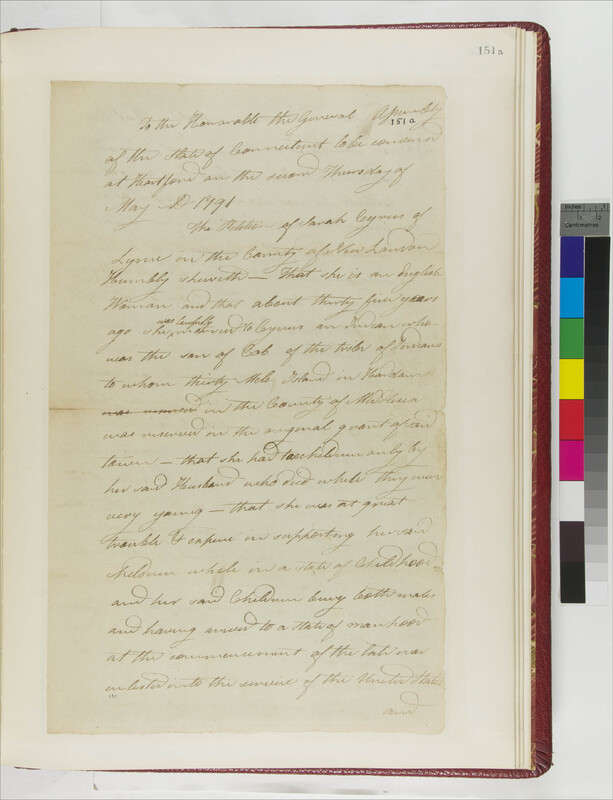 151a
To the Honorable the General Assembly
151a
of the State of Connecticut to be convened
at Hartford on the second Thursday of
May AD 1791
The Petition of Sarah Cyrus of
Lyme in the County of New London
Humbly sheweth — That she is an English
Woman and that about thirty five years
was lawfully
ago she married to Cyrus an Indian who
was the son of Cob of the tribe of Indians
to whom thirty Mile Island in Haddam
was reserved in the County of Middlesex
was reserved in the original grant of said
town — that she had two children only by
her said Husband who died while they were
very young — that she was at great
trouble & expence in supporting her said
children while in a state of Childhood —
and her said Children being both males
and having arived to a state of manhood
at the commencement of the late war
enlisted into the service of the United States
and
Inches
Centimetres